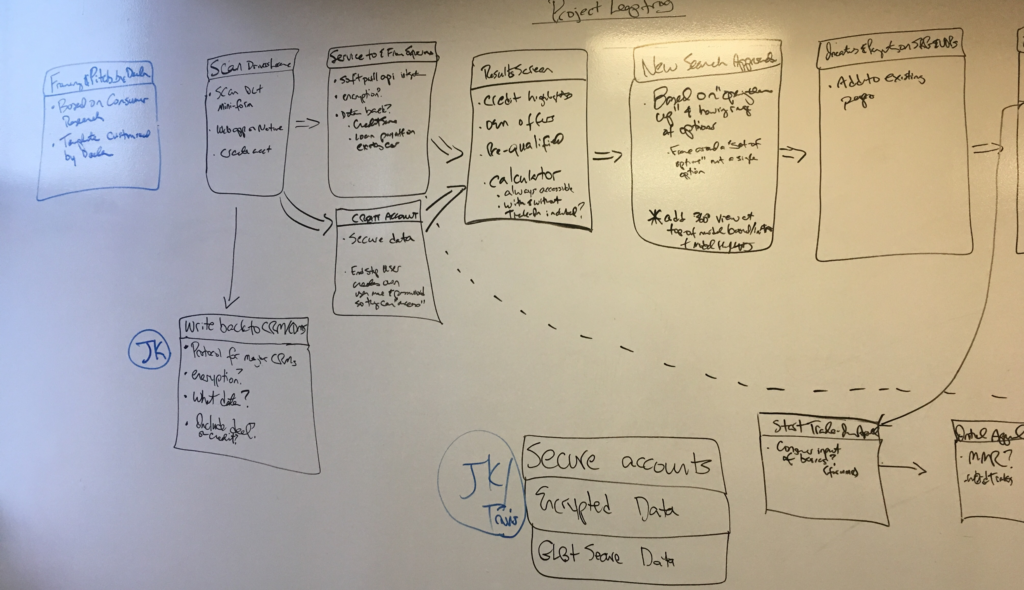 Project
Framing & Pitch by Dealer
• Based on Consumer
Research
• Template customized
by Dealer
Scan Drivers License
• Scan Out
mini-form
• Web app or Native
• Create acct
Service to &
• Soft pull api
• encryption?
• Data back?
• Credit Score
• Loan payoff on
existing car
Create Account
• Secure data
• End step user
creates own
user name & password
so they can "access"
Results Screen
• credit highlights
• our offers
• Pre-qualified
• Calculator
• always accessible
• with & without
Trade-In included?
New Search Approach
• Based on
up" & having range
of options
• Frame around a "set of
options" not a single
option
* add 360 view at
top of model
& model
• Add to existing
page
Write back to CRM/DMS
• Protocol for major CRMs
• encryption?
• What data?
• Include deal?
or credit?
JK
JK/
Travis
Secure accounts
Encrypted Data
GLBT Secure Data
Start Trade-In
• Consumer input
of basics?
• MMR?